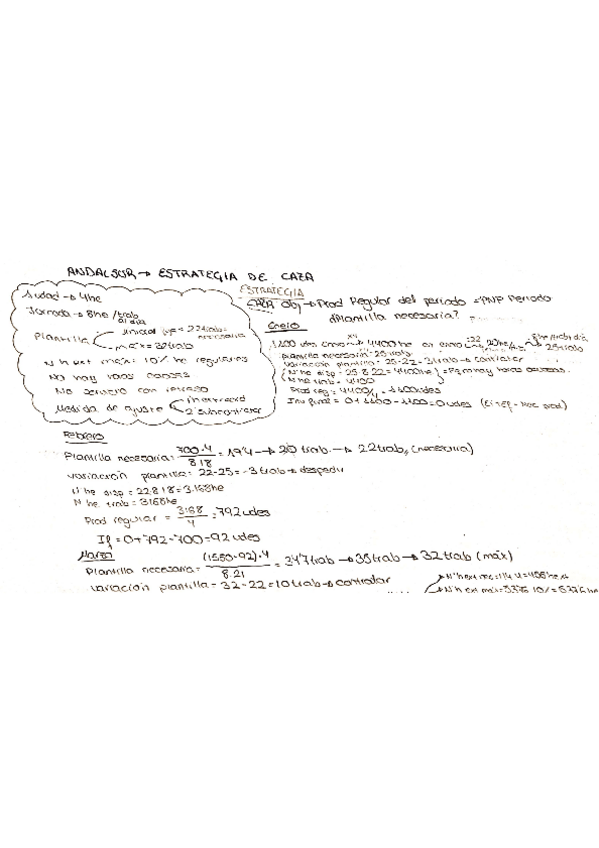 ANDALSUR → ESTRATEGIA DE CAZA
1 udad → 4he
Jornada → 8he / trab al día
Plantilla
inicial = 22 trab = necesaria
max = 32 trab
N h ext máx: 10% he regulares
No hay horas ociosas
No servicio con retraso
Medida de ajuste
1º inventario
2º subcontratar
ESTRATEGIA
CAZA Obj → Prod Regular del periodo = PNP Periodo
¿Plantilla necesaria?
Enero
1.100 udes enero x4 4400 he en enero
Plantilla necesaria: 25 trab
Variación plantilla = 25-22 = 3 trab → contratar
N he disp = 25·8·22 = 4400he
N he trab = 4400
Prod reg = 4400/4 = 1100 udes
Inv final = 0+1100-1100 = 0 udes
Febrero
Plantilla necesaria = 700·4 / 8·18 = 19'4 → 20 trab → 22 trab, (necesaria)
variación plantilla = 22-25 = -3 trab → despedir
N he disp = 22·8·18 = 3.168he
N he trab = 3168he
Prod regular = 3168 / 4 = 792 udes
If = 0+792-700 = 92 udes
Marzo
Plantilla necesaria = (1550-92)·4 / 8·21 = 34'7 trab → 35 trab → 32 trab (máx)
variación plantilla = 32-22 = 10 trab → contratar